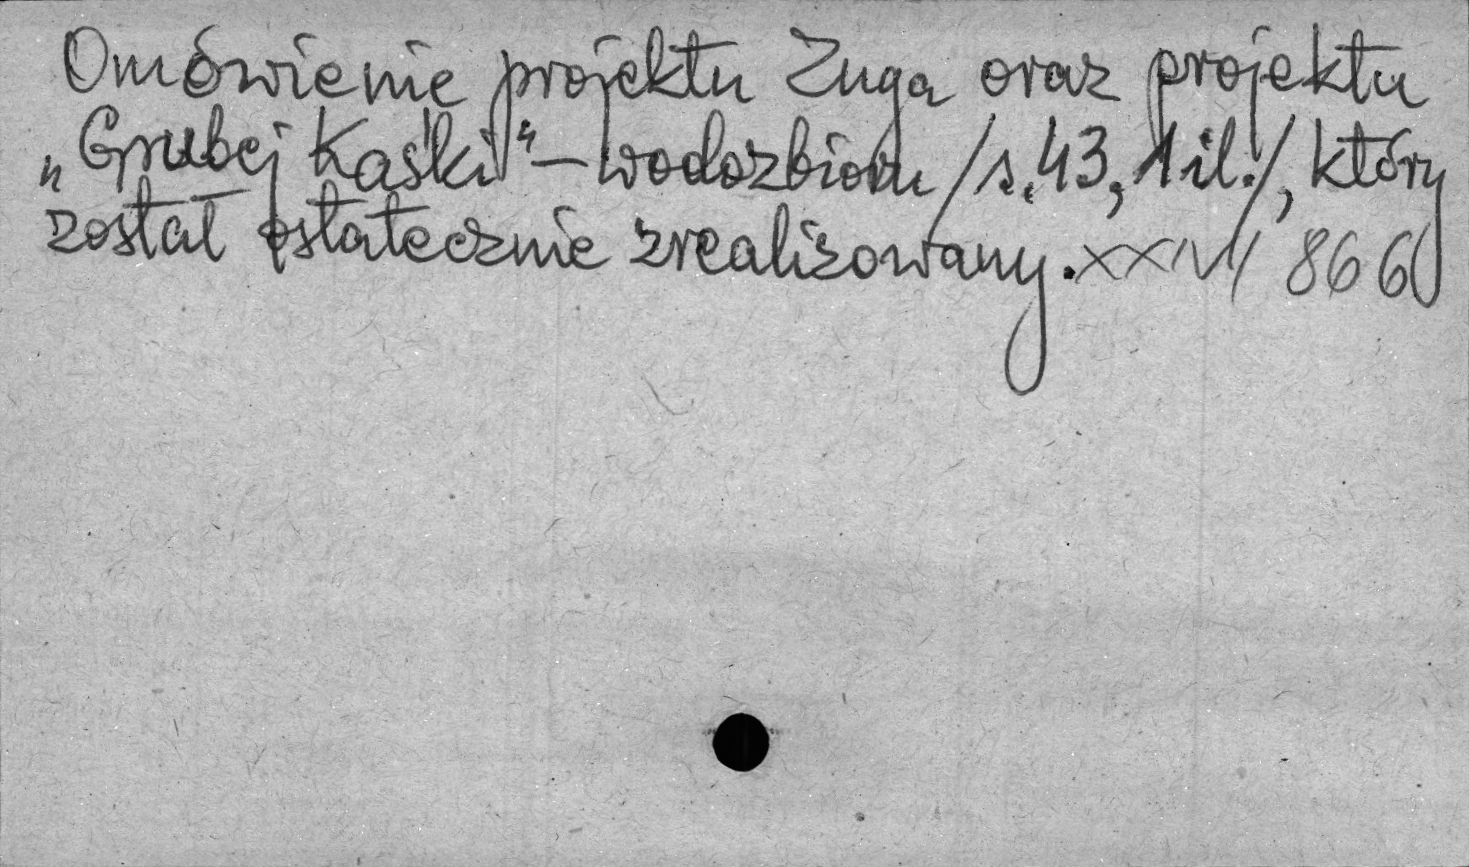 Omówienie projektu Zuga oraz projektu
„Grubej Kaśki" – wodozbioru /s.43, 1 il./, który
został ostatecznie zrealizowany. XXIV/ 8660